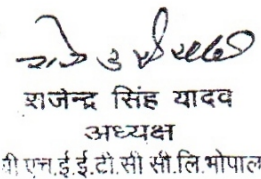 राजेन्द्र सिंह यादव
अध्यक्ष
एच.ई.ई.टी.सी सी.लि.भोपाल